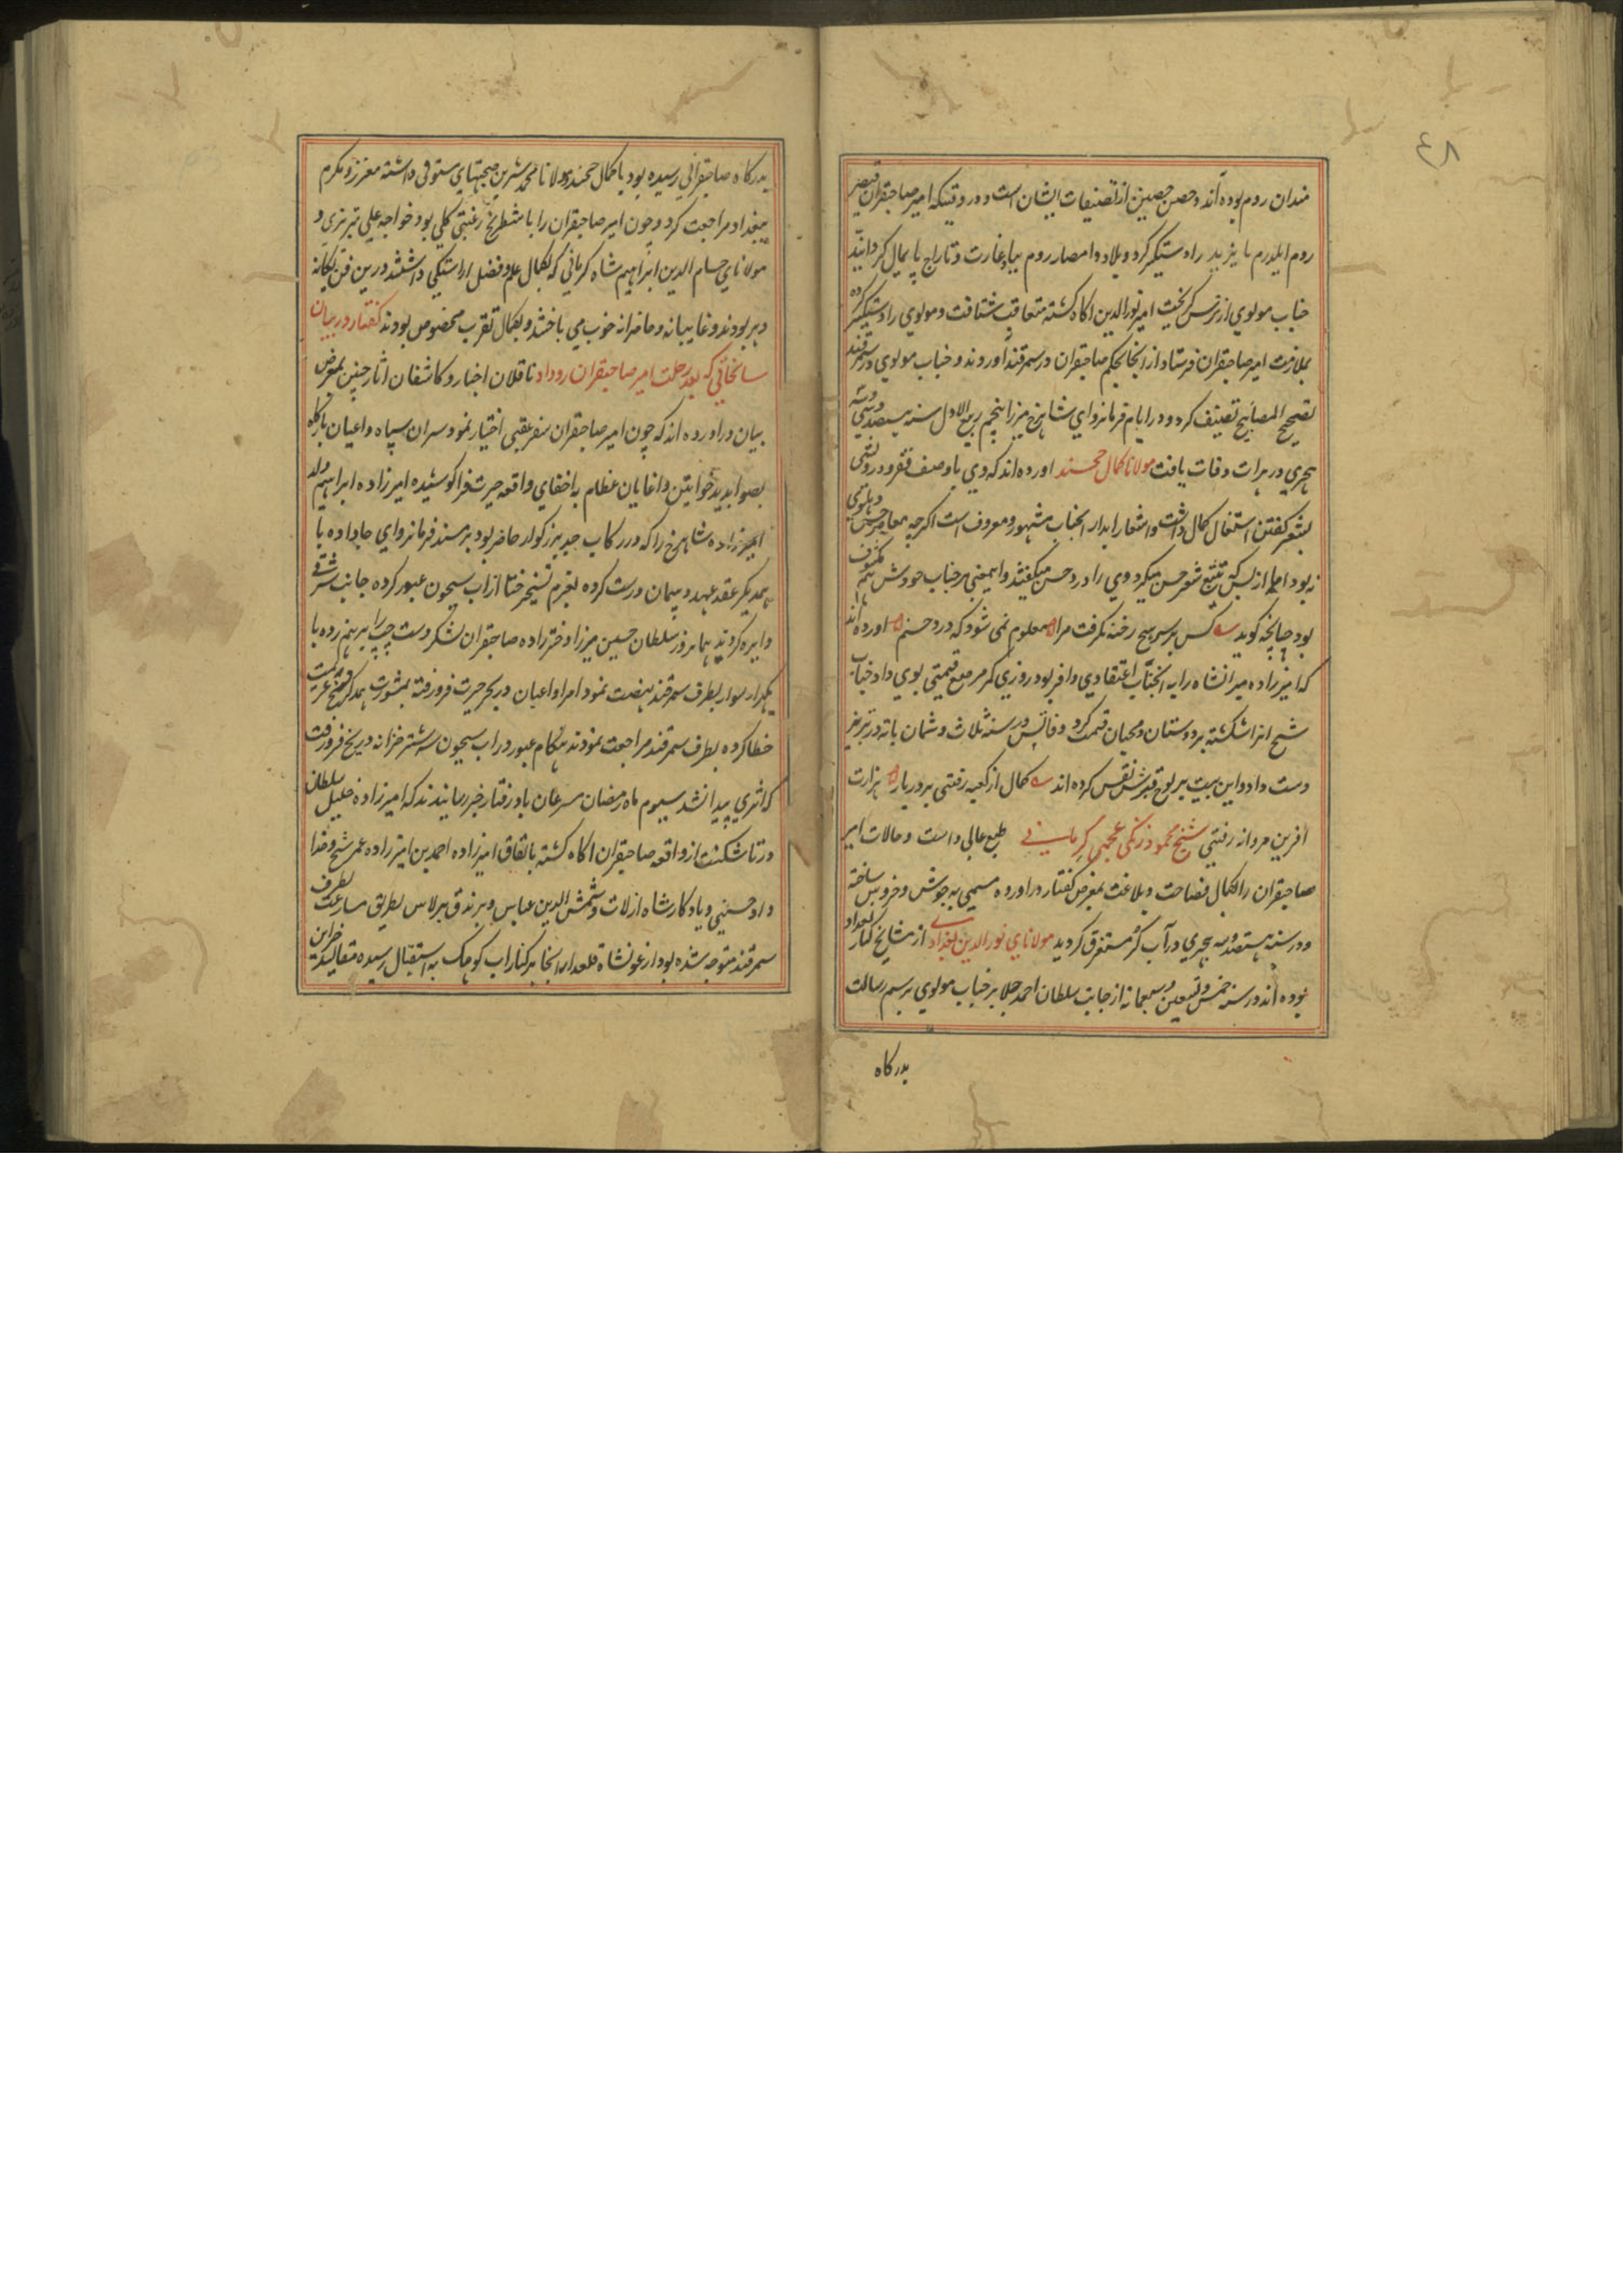 ٤٨
مندان روم بوده اند و حصن حصین از تصنیفات ایشان است و در وقتیکه امیر صاحبقران قیصر
روم ایلدرم بایزید را دستیکیر کرد و بلاد و امصار روم بباد غارت و تاراج پایمال کردانید
جناب مولوی از ترس کریخت امیر نورالدین اکاه کشته متعاقب شتافت و مولوی را دستیکیر کرده
بملازمت امیر صاحبقران فرستاد از انجا بحکم صاحبقران در سمرقند اوردند و جناب مولوی در سمرقند
تصحیح المصابیح تصنیف کرد و در ایام فرمانروای شاهرخ میرزا پنجم ربیع الاول سنه
هجری در هرات وفات یافت مولانا کمال خجند اورده اند که وی با وصف فقر و درویشی
بشعر کفتن اشتغال کمال داشت و اشعار ابدار انجناب مشهور و معروف است اکرچه بمعاصر حسن دهلوی
نه بود اما از بسکه تتبع شعر حسن میکرد وی را دزد حسن میکفتند و این معنی بر جناب خودش هم مکشوف
بود چنانچه کوید کس بر سر هیچ رخنه نکرفت مرا معلوم نمی شود که دزد حسنم اورده اند
که امیرزاده میرانشاه را به انجناب اعتقادی وافر بود روزی کمر مرصع قیمتی بوی داد جناب
شیخ انرا شکسته بر دوستان و محبان قسمت کرد وفاتش در سنه ثلاث و ثمان مایه در تبریز
دست داد و این بیت بر لوح قبرش نقش کرده اند کمال از کعبه رفتی بر در یار هزارت
افرین مردانه رفتی شیخ محمود زنکی عجمی کرمانی طبع عالی داشت و حالات امیر
صاحبقران را بکمال فصاحت و بلاغت بمعرض کفتار در اورده مسمی به جوش و خروش ساخته
و در سنه هشتصد و سه هجری در آب کر مستغرق کردید مولانای نورالدین بغدادی از مشایخ کبار بغداد
بوده اند در سنه خمس و تسعین و سبعمایه از جانب سلطان احمد جلایر جناب مولوی برسم رسالت
بدرکاه
بدرکاه صاحبقرانی رسیده بود با کمال خجند و مولانا محمد شیرین صحبتهای مستوفی داشته معزز و مکرم
ببغداد مراجعت کرد و چون امیر صاحبقران را با شطرنج رغبتی کلی بود خواجه علی تبریزی و
مولانای حسام الدین ابراهیم شاه کرمانی که بکمال علم و فضل اراستکی داشتند درین فن یکانه
دهر بودند و غایبانه و حاضرانه خوب می باختند و بکمال تقرب مخصوص بودند کفتار در بیان
سانحاتی که بعد رحلت امیر صاحبقران روداد ناقلان اخبار و کاشفان اثار چنین بمعرض
بیان در اورده اند که چون امیر صاحبقران سفر عقبی اختیار نمود سران سپاه و اعیان بارکاه
بصوابدید خواتین و اغایان عظام به اخفای واقعه حیرت افزا کوشیده امیرزاده ابراهیم ولد
امیرزاده شاهرخ را که در رکاب جد بزرکوار حاضر بود بر مسند فرمانروای جا داده با
همدیکر عقد عهد و پیمان درست کرده بعزم تسخیر ختا از اب سیحون عبور کرده جانب شرقی
دایره کردند همانروز سلطان حسین میرزا دخترزاده صاحبقران لشکر دست چپ را بر هم زده با
یکهزار سوار بطرف سمرقند نهضت نمود امرا و اعیان در بحر حیرت فرو رفته بمشورت همدکر فسخ عزیمت
خطا کرده بطرف سمرقند مراجعت نمودند هنکام عبور در اب سیحون سه شتر خزانه در یخ فرو رفت
که اثری پیدا نشد سیوم ماه رمضان مسرعان باد رفتار خبر رسانیدند که امیرزاده خلیل سلطان
در تاشکنت از واقعه صاحبقران اکاه کشته باتفاق امیرزاده احمد بن امیرزاده عمر شیخ و خدا
داد حسینی و یادکار شاه ارلات و شمس الدین عباس و برندق برلاس بطریق مسارعت بطرف
سمرقند متوجه شده بود ارغونشاه قلعدار انجا بر کنار اب کوهک به استقبال رسیده مقالید خزاین